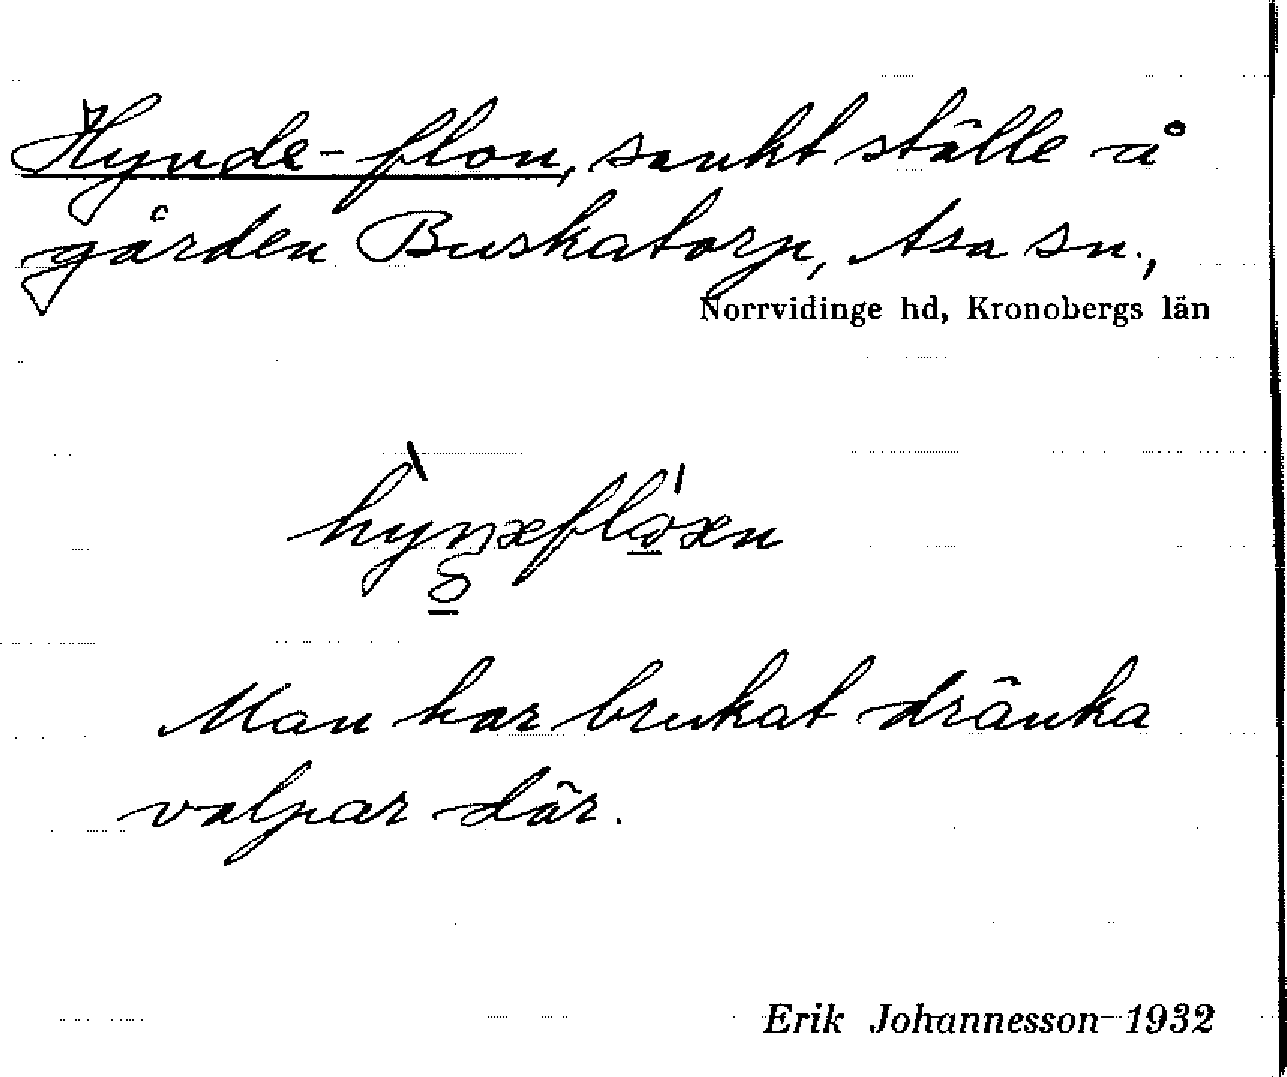 Hynde-flon, sankt ställe å
gården Buskatorp, Asa sn.,
Norrvidinge hd, Kronobergs län
Man har brukat dränka
valpar där.
Erik Johannesson 1932